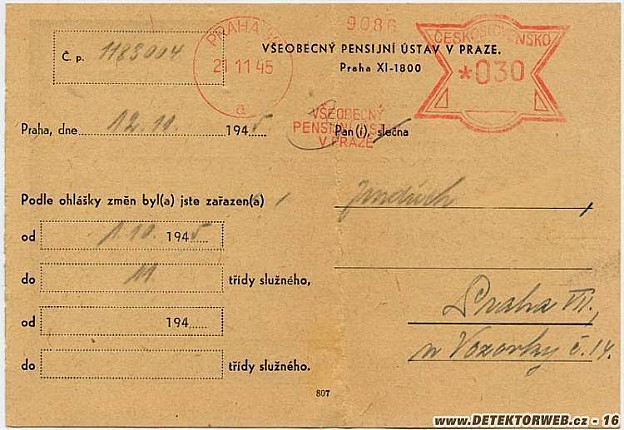 9086
PRAHA
ČESKOSLOVENSKO
Č. p. 1183004
21.11.45
VŠEOBECNÝ PENSIJNÍ ÚSTAV V PRAZE.
*030
Praha XI-1800
a
VŠEOBECNÝ
PENSIJNÍ ÚST.
V PRAZE
Praha, dne 12.11. 1945
Pan(í), slečna
Podle ohlášky změn byl(a) jste zařazen(a)
Jindřich
od 1.10. 1945
do 11 třídy služného,
Praha VII.,
od 194
u Vozovky č. 14.
do třídy služného.
807
www.DETEKTORWEB.cz - 16